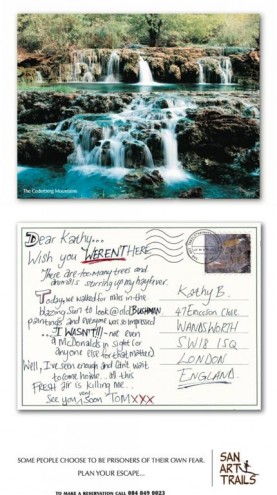 The Cederberg Mountains
Dear Kathy...
Wish you WERENT HERE
There are too many trees and
animals stirring up my hayfever.
Today we walked for miles in the
blazing Sun to look @ old BUSHMAN
paintings and everyone was so impressed
... I WASN'T!!! - not even
a McDonalds in sight (or
anyone else for that matter)
Well, I've seen enough and can't wait
to come home... all this
FRESH air is killing me..
See you very Soon TOM XXX
Kathy B.
47 Ericson Close
WANDSWORTH
SW18 1SQ
LONDON
ENGLAND
SOME PEOPLE CHOOSE TO BE PRISONERS OF THEIR OWN FEAR.
PLAN YOUR ESCAPE...
TO MAKE A RESERVATION CALL 084 849 0023
SAN
ART
TRAILS